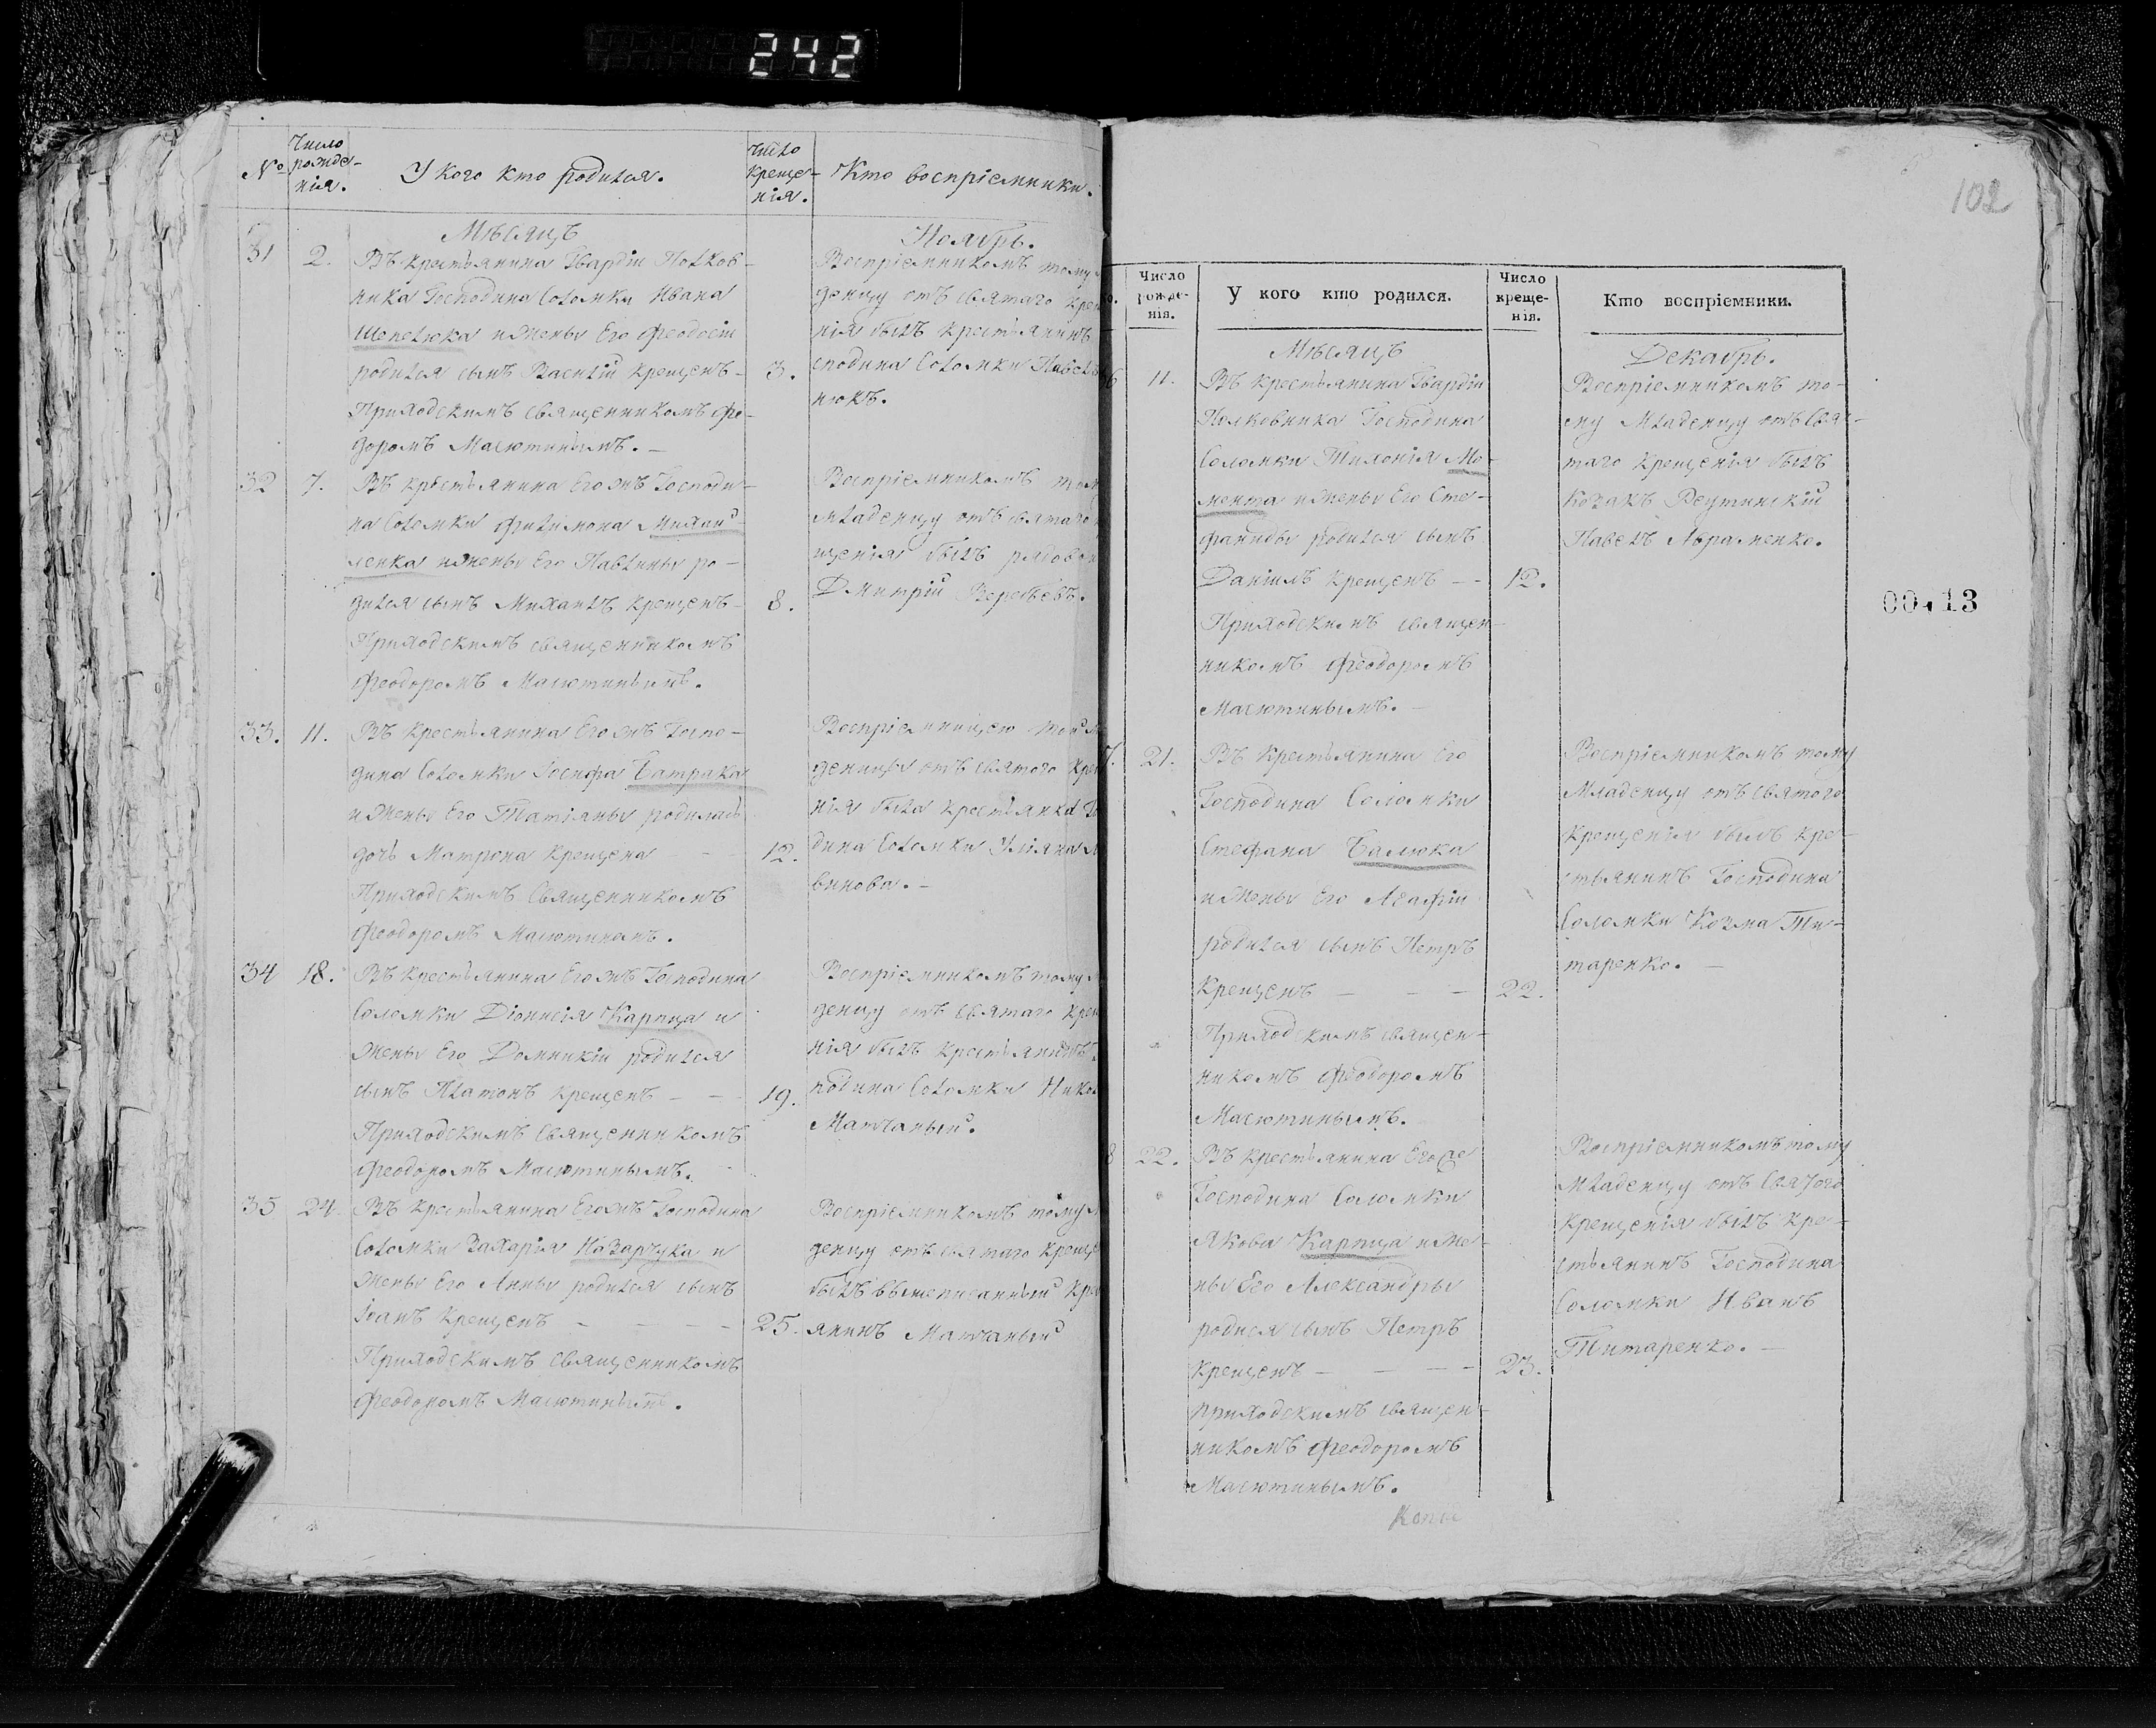 242
№
Число рожде-нія.
У кого кто родился.
Число креще-нія.
Кто воспріемники.
Мѣсяцъ
Ноябрь.
31
2.
Въ крестьянина Гвардіи Полков-
ника Господина Соломки Ивана
Шепелюка и жены Его Феодосіи
родился сынъ Василій крещенъ-
Приходскимъ священникомъ Фе-
доромъ Масютинымъ. -
3.
Воспріемникомъ тому
денцу отъ святаго кре
нія былъ крестьянинъ
сподина Соломки
нюкъ.
32
7.
Въ крестьянина Егожъ Господи-
на Соломки Филимона Михай-
ленка и жены Его Павлины ро-
дился сынъ Михаилъ крещенъ-
Приходскимъ священникомъ
Феодоромъ Масютинымъ.
8.
Воспріемникомъ
младенцу отъ святаго
щенія былъ рядовой
Дмитрій
33.
11.
Въ крестьянина Егожъ Госпо-
дина Соломки Іосифа Батрака
и жены Его Татіяны родилась
дочь Матрона крещена - -
Приходскимъ Священникомъ
Феодоромъ Масютинымъ.
12.
Воспріемницею той
деницы отъ святого кре
нія была крестьянка Го
дина Соломки Уліяна
винова. -
34
18.
Въ крестьянина Егожъ Господина
Соломки Діонисія Карпца и
жены Его Домникіи родился
сынъ Платонъ крещенъ - -
Приходскимъ Священникомъ
Феодоромъ Масютинымъ.
19.
Воспріемникомъ тому
денцу отъ святаго кре
нія былъ крестьянинъ
подина Соломки Нико
Матчаный.
35
24.
Въ крестьянина Егожъ Господина
Соломки Захарія Назарчука и
жены Его Анны родился сынъ
Іоанъ крещенъ - - - -
Приходскимъ священникомъ
Феодоромъ Масютинымъ.
25.
Воспріемникомъ тому
денцу отъ святаго креще
былъ вышеписанный кре
янинъ Матчаный
102
Число рожде-нія.
У кого кто родился.
Число креще-нія.
Кто воспріемники.
Мѣсяцъ
Декабрь.
6
11.
Въ крестьянина Гвардіи
Полковника Господина
Соломки Тихонія Мо-
мента и жены Его Сте-
фаниды родился сынъ
Даніилъ крещенъ - -
Приходскимъ священ-
никомъ Феодоромъ
Масютинымъ. -
12.
Воспріемникомъ то-
му Младенцу отъ Свя-
таго крещенія былъ
козакъ Реутинскій
Павелъ Авраменко.
00413
7.
21.
Въ крестьянина Его
Господина Соломки
Стефана Балюка
и жены Его Агафіи
родился сынъ Петръ
крещенъ - - -
Приходскимъ священ-
никомъ Феодоромъ
Масютинымъ.
22.
Воспріемникомъ тому
Младенцу отъ святого
крещенія былъ кре-
стьянинъ Господина
Соломки Козма Ти-
таренко. -
8
22.
Въ крестьянина Егоже
Господина Соломки
Якова Карпца и же-
ны Его Александры
родися сынъ Петръ
крещенъ - - - -
приходскимъ священ-
никомъ Феодоромъ
Масютинымъ.
23.
Воспріемникомъ тому
младенцу отъ Святого
крещенія былъ кре-
стьянинъ Господина
Соломки Иванъ
Титаренко. -